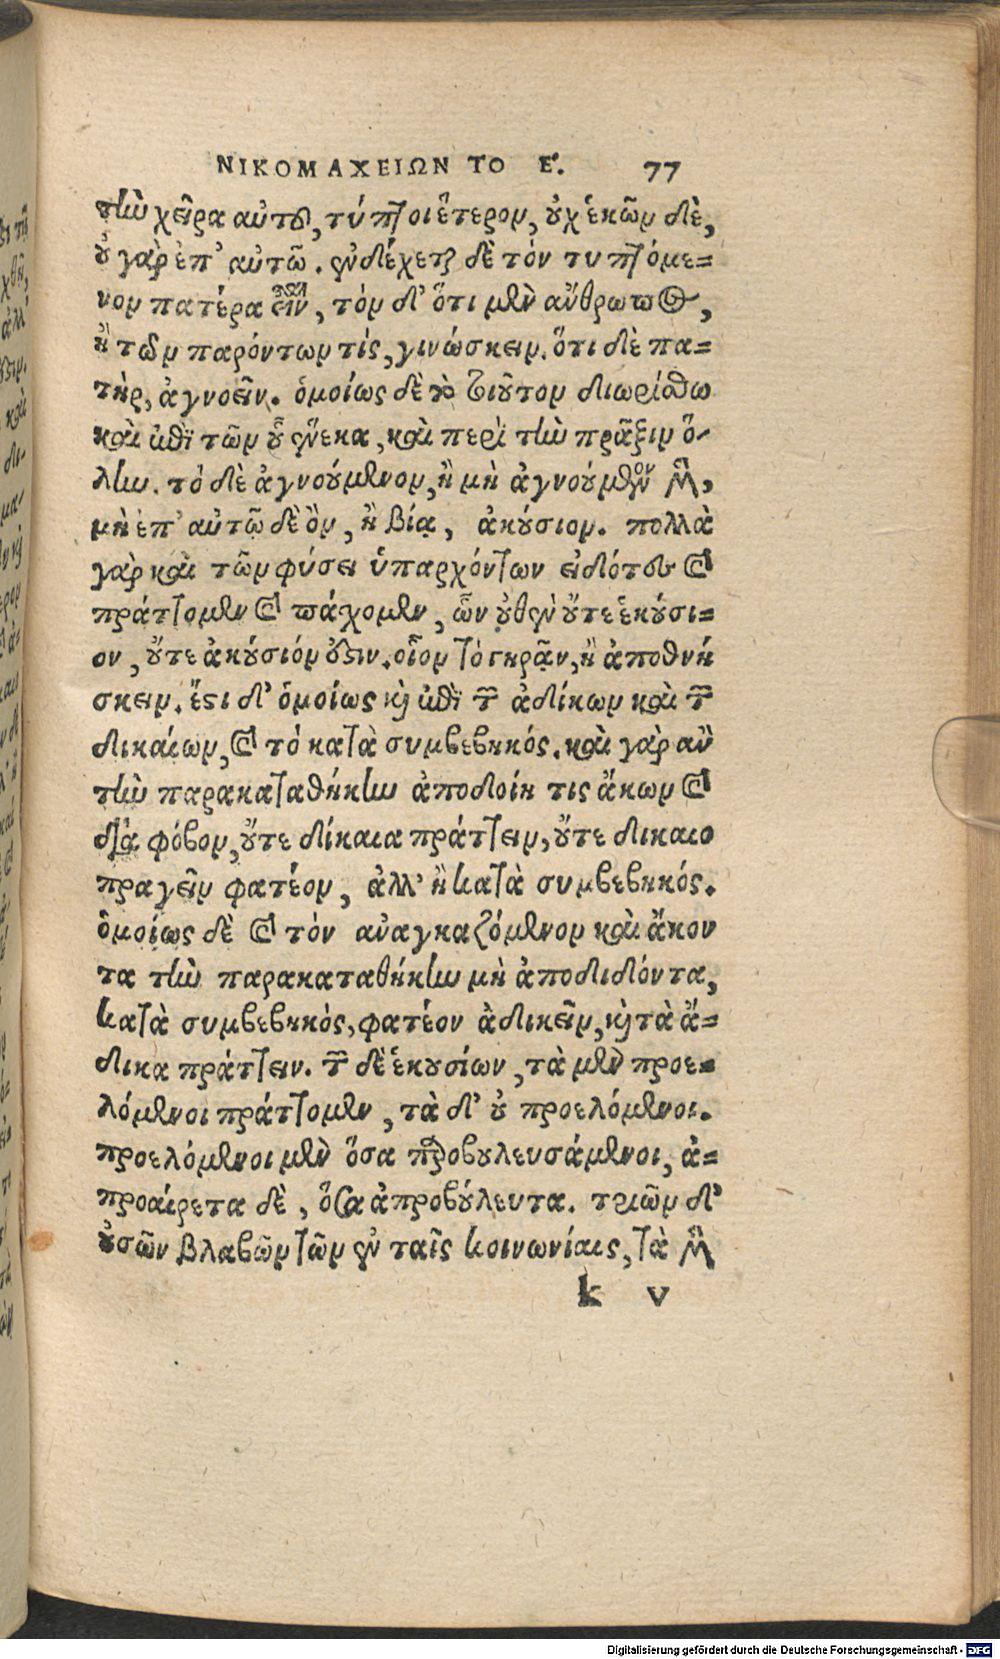 ΝΙΚΟΜΑΧΕΙΩΝ ΤΟ Ε. 77
τὴν χεῖρα αὐτοῦ, τύπτοι ἕτερον, οὐχ ἑκὼν δὲ,
οὐ γὰρ ἐπ' αὐτῷ. ἐνδέχεται δὲ τὸν τυπτόμε=
νον πατέρα εἶναι, τὸν δ' ὅτι μὲν ἄνθρωπος,
ἢ τῶν παρόντων τίς, γινώσκειν. ὅτι δὲ πα=
τὴρ, ἀγνοεῖν. ὁμοίως δὲ τὸ τοιοῦτον διωρίσθω
καὶ ἐπὶ τῶν οὗ ἕνεκα, καὶ περὶ τὴν πρᾶξιν ὅ-
λην. τὸ δὲ ἀγνούμενον, ἢ μὴ ἀγνούμενον μὲν,
μὴ ἐπ' αὐτῷ δὲ ὂν, ἢ βίᾳ, ἀκούσιον. πολλὰ
γὰρ καὶ τῶν φύσει ὑπαρχόντων εἰδότες καὶ
πράττομεν καὶ πάσχομεν, ὧν οὐθὲν οὔτε ἑκούσι=
ον, οὔτε ἀκούσιόν ἐστιν. οἷον τὸ γηρᾷν, ἢ ἀποθνή
σκειν. ἔστι δ' ὁμοίως καὶ ἐπὶ τῶν ἀδίκων καὶ τῶν
δικαίων, καὶ τὸ κατὰ συμβεβηκός. καὶ γὰρ ἂν
τὴν παρακαταθήκην ἀποδοίη τις ἄκων καὶ
διὰ φόβον, οὔτε δίκαια πράττειν, οὔτε δικαιο
πραγεῖν φατέον, ἀλλ' ἢ κατὰ συμβεβηκός.
ὁμοίως δὲ καὶ τὸν ἀναγκαζόμενον καὶ ἄκον
τα τὴν παρακαταθήκην μὴ ἀποδιδόντα,
κατὰ συμβεβηκὸς, φατέον ἀδικεῖν, καὶ τὰ ἄ=
δικα πράττειν. τῶν δὲ ἑκουσίων, τὰ μὲν προε=
λόμενοι πράττομεν, τὰ δ' οὐ προελόμενοι.
προελόμενοι μὲν ὅσα προβουλευσάμενοι, ἀ=
προαίρετα δὲ, ὅσα ἀπροβούλευτα. τριῶν δ'
οὐσῶν βλαβῶν τῶν ἐν ταῖς κοινωνίαις, τὰ μὲν
k v
Digitalisierung gefördert durch die Deutsche Forschungsgemeinschaft - DFG